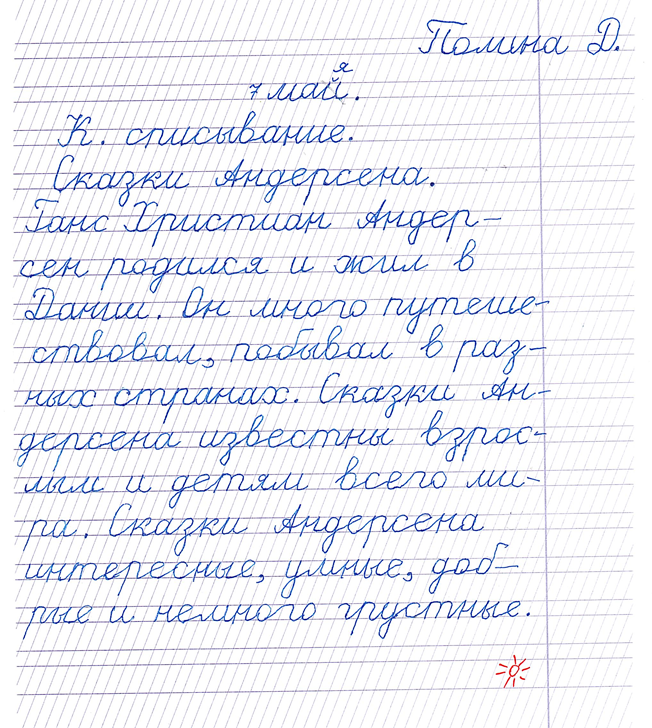 Полина Д.
7 май.
я
К. списывание.
Сказки Андерсена.
Ганс Христиан Андер-
сен родился и жил в
Дании. Он много путеше-
ствовал, побывал в раз-
ных странах. Сказки Ан-
дерсена известны взрос-
лым и детям всего ми-
ра. Сказки Андерсена
интересные, умные, доб-
рые и немного грустные.